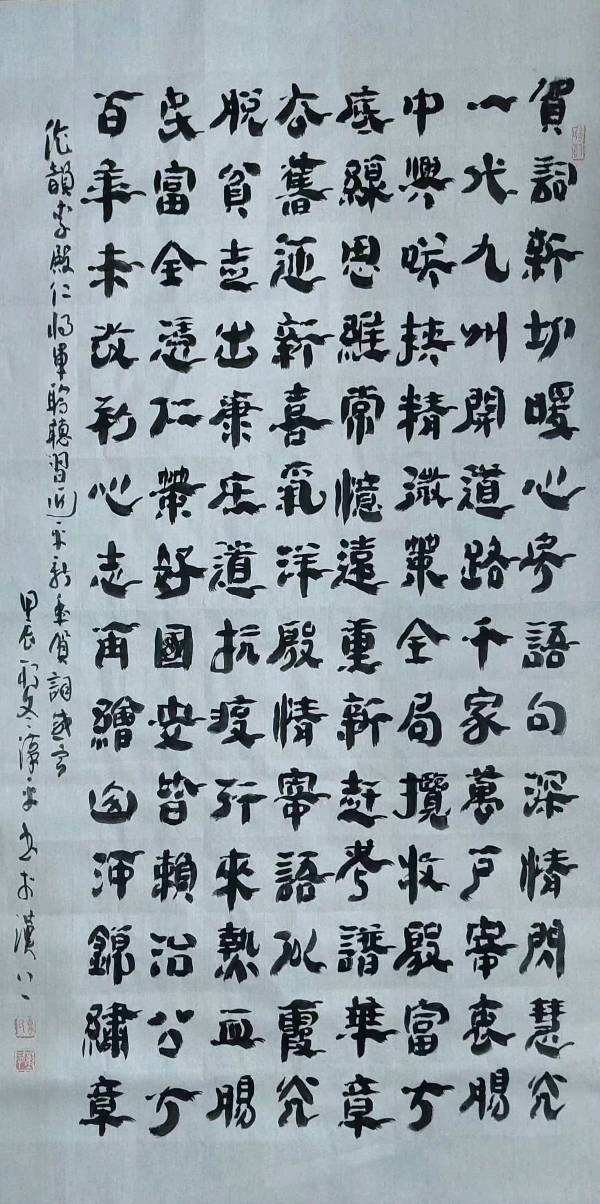 賀詞新切暖心房語句深情閃慧光
一代九州開道路千家萬戶寄衷腸
中興挾精微策全局攬收殷富方
底線思維常憶遠重新趕考譜華章
去舊迎新喜氣洋殷情寄語似霞光
脫貧志出康莊道抗疫行來熱血腸
民富全憑仁策好國安皆賴治公方
百年未改初心志再繪山河錦繡章
依韻李殿仁將軍聆聽習近平新年賀詞感言
甲辰初冬漳平書於漢